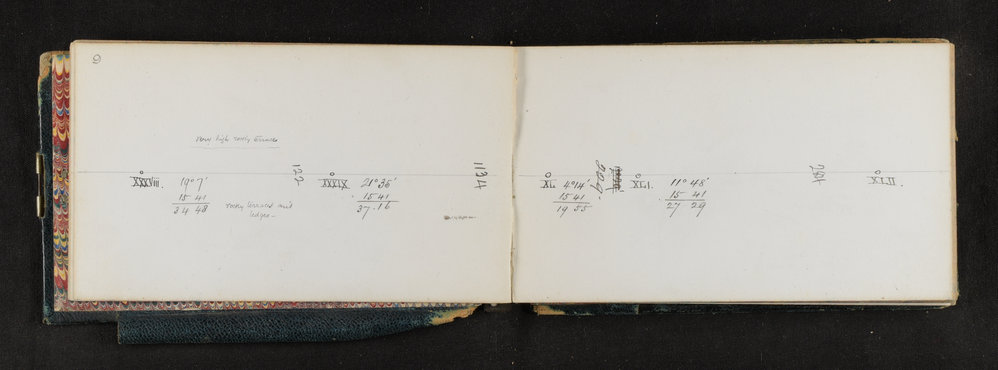 9
very high rocky terraces
XXXVIII. 19° 7'
15 41
34 48
rocky terraces and
ledges
122
XXXIX 21° 35'
15 41
37.16
1134
XL 4° 14'
15 41
19 55
209
XLI. 11° 48'
15 41
27 29
XLII.